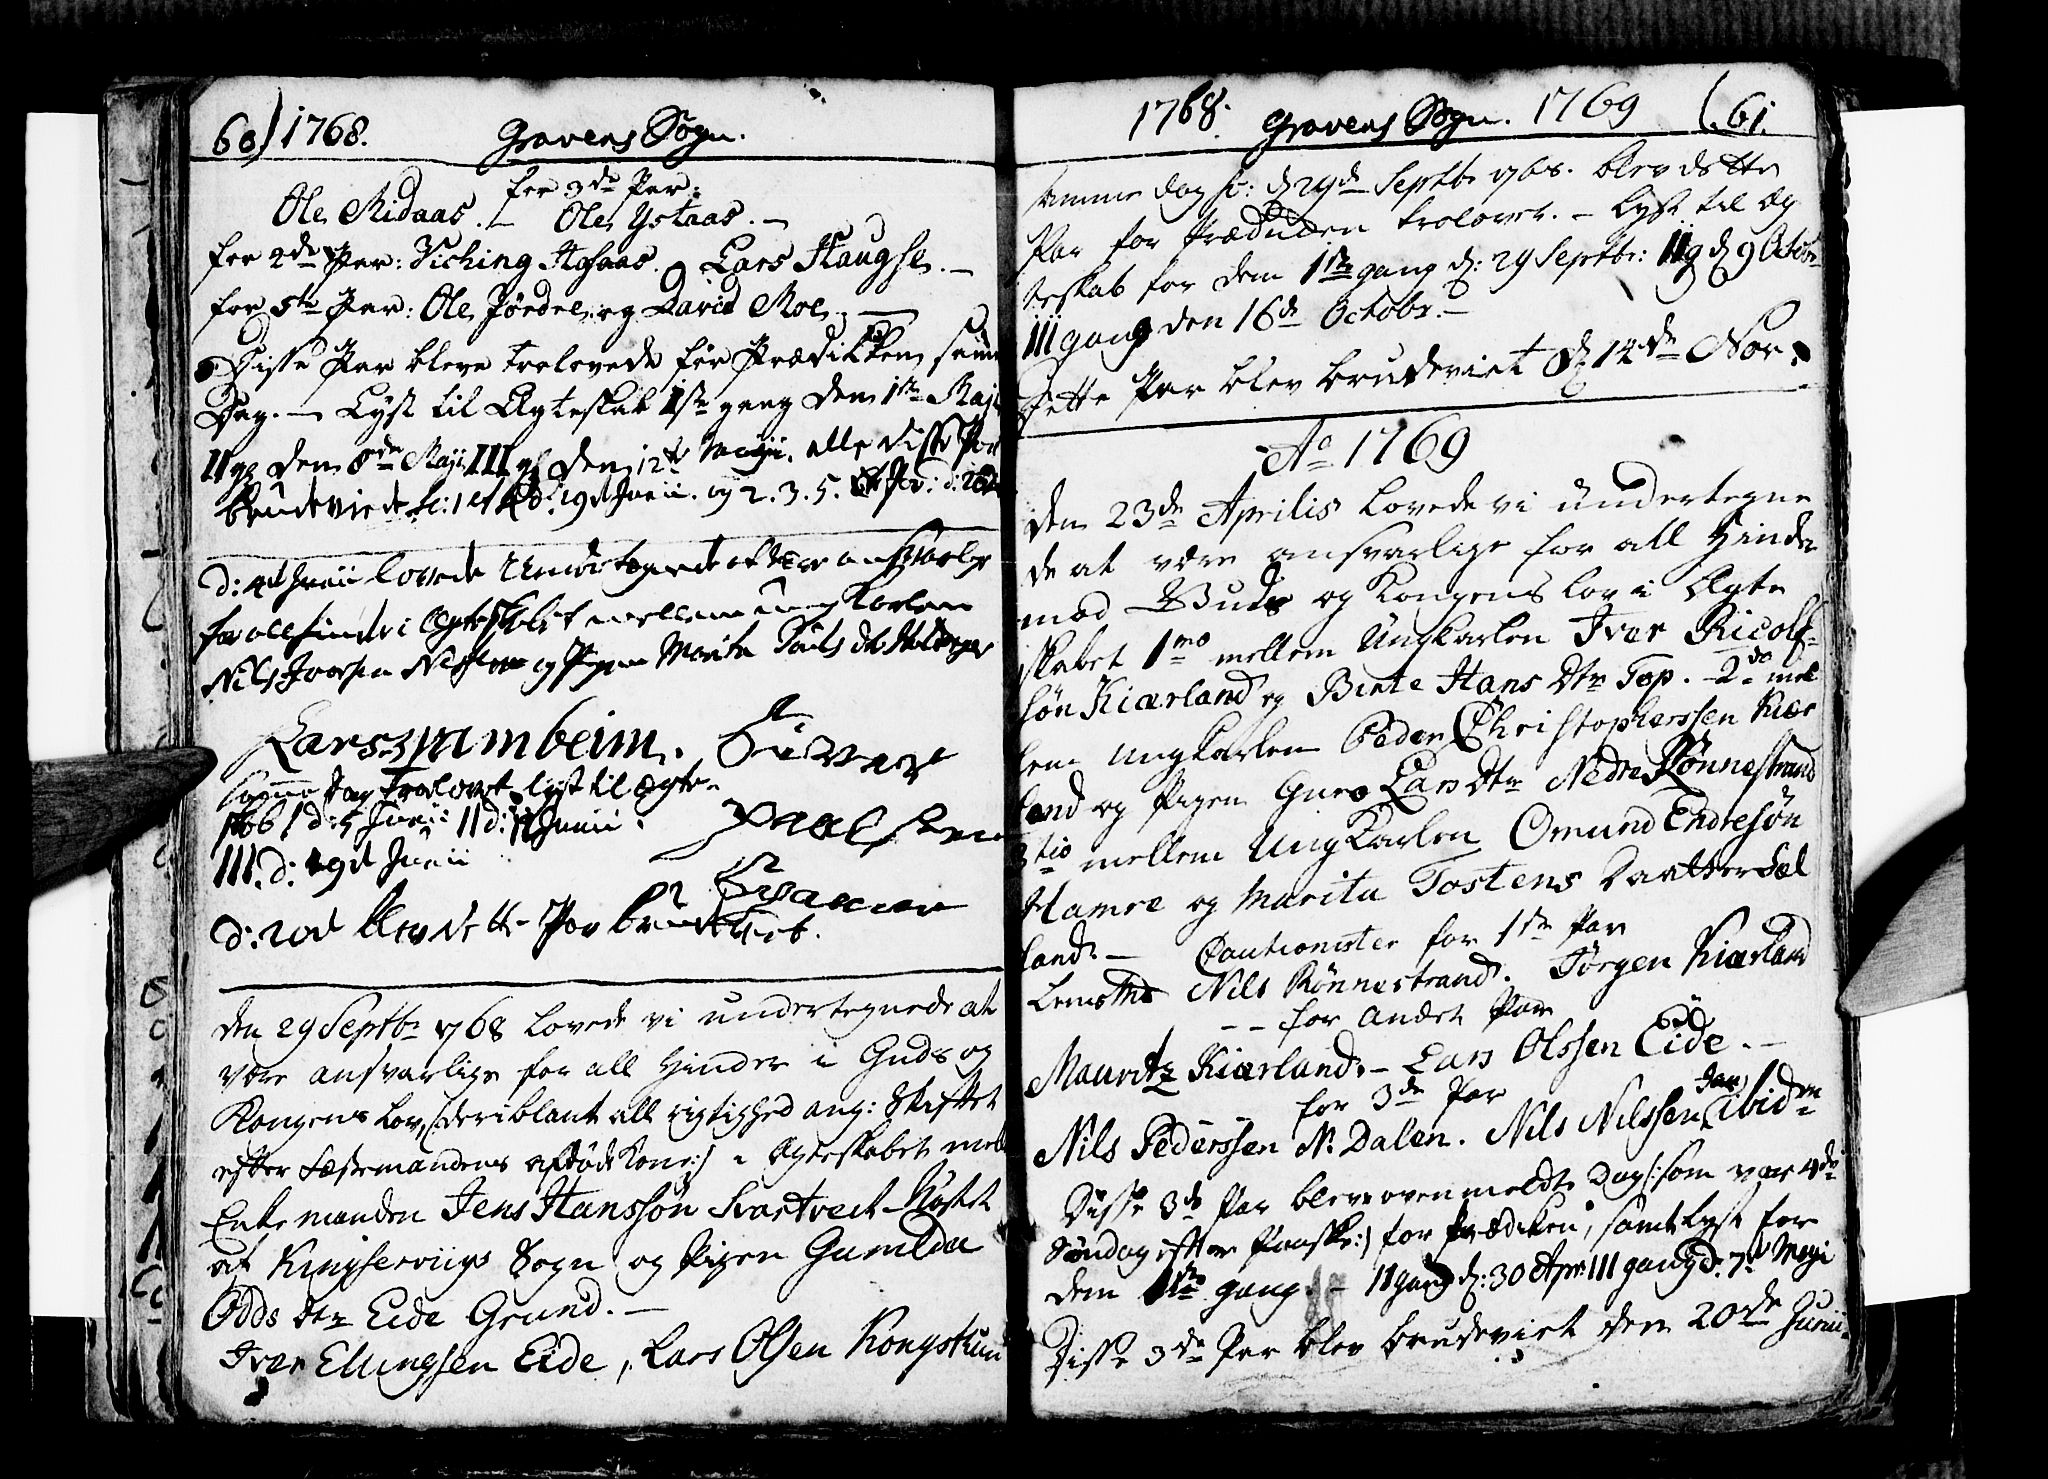 60) 1768. Gravens Sogn.
for 3de Par:
Ole Ridaas. – Ole Ystaas. –
for 4de Par: Viching og Lars Haugse. –
for 5te Par: Ole Jørdre og David Moe. –
Disse Par bleve trolovede før Prædikken samme
Dag. – Lyst til Ægteskab 1ste gang den 1ste Maji
II gg den 8de Maji III gg den 12te Maji. alle disse Par
brudeviede d: 19d Junii. og 2. 3. 5. Par: d: 26
d: 4d Junii lovede Undertegnede at være ansvarlig
for all hinder i Ægteskabet mellem ung Karlen
Nils Iversen og Pigen Marita
Lars Spaanheim.
samme Dag trolovet, lyst til ægte-
skab I d: 5 Junii II d: Junii
III. d: 19d Junii
d: blev dette Par brudeviet.
den 29 Septbr 1768 lovede vi undertegnede at
være ansvarlige for all Hinder i Guds og
Kongens Lov, (deriblant all rigtighed ang: Skiftet
efter Fæstemandens afdøde Kone:) i Ægteskabet mell
Enke manden Jens Hanssøn Svartveit
af Kingserviigs Sogn og Pigen Gunilda
Odds Dtr Eide Grund. –
Iver Ellingsen Eide, Lars Olsen
1768. Gravens Sogn. 1769 (61.
samme dag d: 29de Septbr 1768. blev dette
Par før Præd:n trolovet. – Lyst til Æg
teskab for dem 1ste gang d: 29 Septbr: IIg d 9 Octobr
III gang den 16de Octobr. –
Dette Par blev brudeviet d 14de Nov.
Ao 1769
den 23de Aprilis lovede vi undertegne
de at være ansvarlige for all Hinder
mod Guds og Kongens Lov i Ægte
skabet 1mo mellem Ungkarlen Iver Ricolf-
søn Kiærland og Birte Hans Dtr Top. – 2do mel
lem ungkarlen Peder Christopherssen Kiær
land og Pigen Guro Lars Dtr Nedre Rønnestrand
3tio mellem Ungkarlen Omund Endresøn
Hamre og Marita Tostens Daatter Sæl
land. – Cautionister for 1ste Par
Nils Rønnestrand. Jørgen Kiærland
– – for andet Par
Mauritz Kiærland. – Lars Olssen Eide. –
for 3de Par
Nils Pederssen N. Dalen. Nils Nilssen ibidm
Disse 3de Par bleve ovenmeldte Dag (: som var 4de
Søndag efter Paaske:) før Prædiken, samt Lyst for
dem 1ste gang. – II gang d: 30 Apr: III gang d. 7d Maji
Disse 3de Par blev brudeviet den 20de Junii.